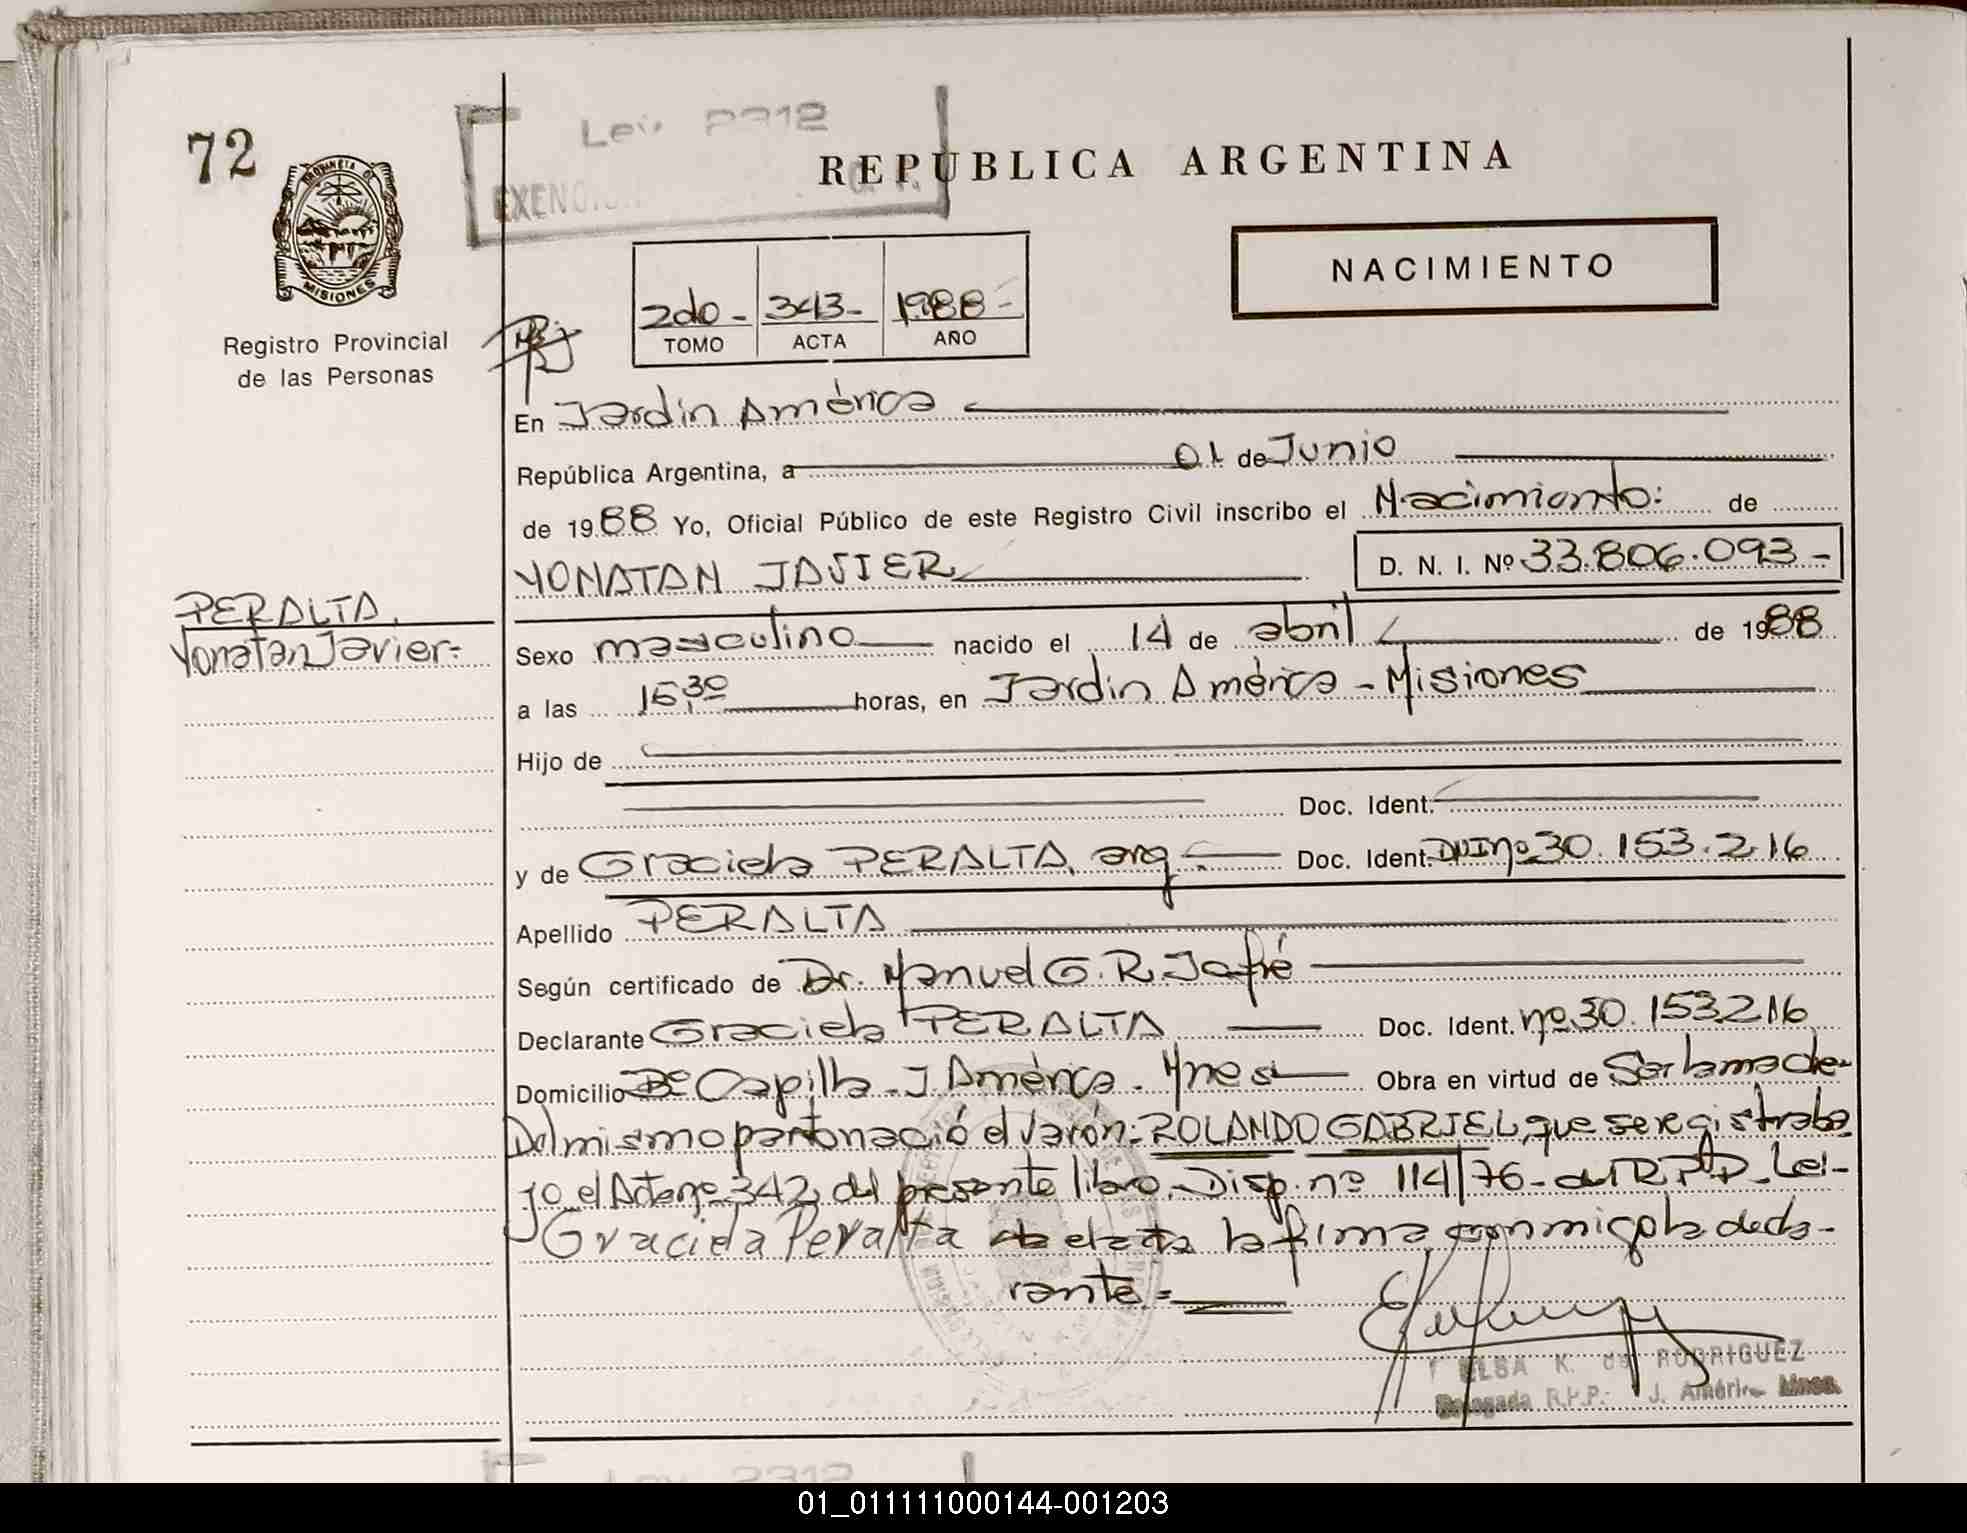 72
Ley 2312
EXENC
REPUBLICA ARGENTINA
PROVINCIA DE
MISIONES
Registro Provincial
de las Personas
2do - 343 - 1988 -
TOMO ACTA AÑO
NACIMIENTO
En Jardin América
República Argentina, a 01 de Junio
de 1988 Yo, Oficial Público de este Registro Civil inscribo el Nacimiento: de
YONATAN JAVIER D. N. I. Nº 33.806.093 -
PERALTA,
Yonatan Javier -
Sexo masculino nacido el 14 de abril de 1988
a las 16,30 horas, en Jardin América - Misiones
Hijo de
Doc. Ident.
y de Graciela PERALTA, arg - Doc. Ident. DNI nº 30.153.216
Apellido PERALTA
Según certificado de Dr. Manuel G. R. Jafré
Declarante Graciela PERALTA Doc. Ident. nº 30.153.216
Domicilio Bº Capilla - J. América - Mnes Obra en virtud de Ser la madre -
Del mismo parto nació el varón: ROLANDO GABRIEL, que se registra ba
jo el Acta nº 342, del presente libro. - Disp. nº 114/76 - del R.P.P. - Lei -
Graciela Peralta el acta la firma conmigo la decla -
rante =
ELSA K. de RODRIGUEZ
Delegada R.P.P. J. América Mnes.
2312
01_011111000144-001203